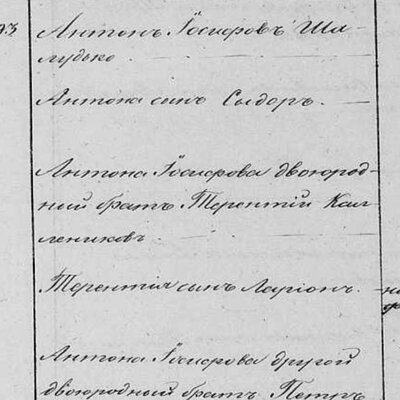 93 Антонъ Іосифовъ Ша-
лудько.
Антона сынъ Сыдоръ.
Антона Іосифова двоюрод-
ный братъ Терентій Кал-
лениковъ
Терентія сынъ Ларіонъ.
Антона Іосифова другой
двоюродный братъ Петръ